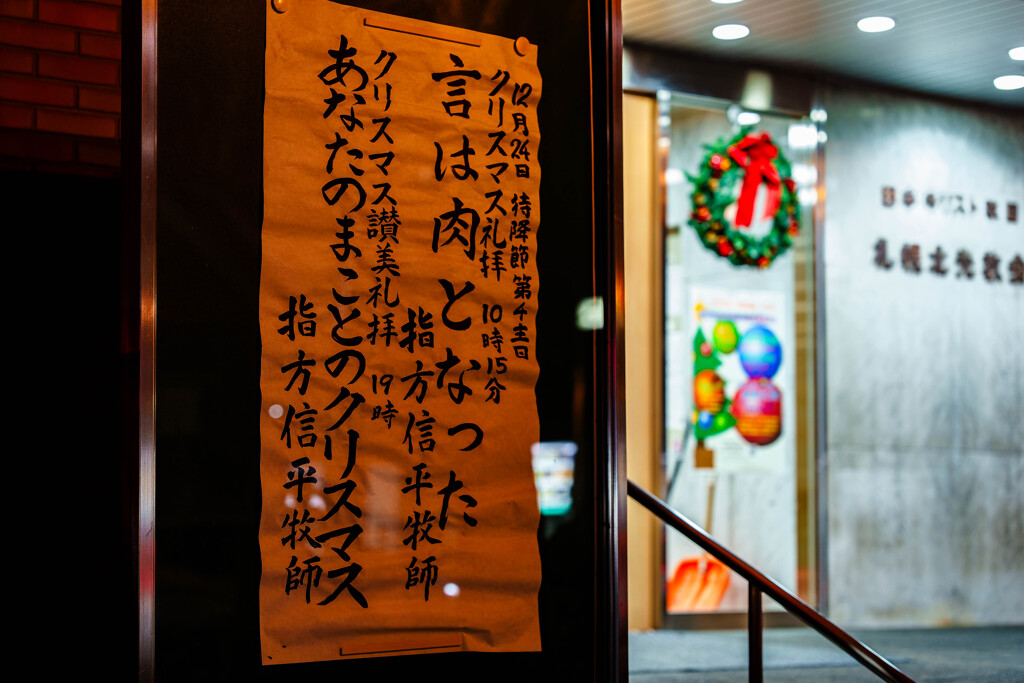 12月24日 待降節第4主日
クリスマス礼拝 10時15分
言は肉となった
指方信平牧師
クリスマス讃美礼拝 19時
あなたのまことのクリスマス
指方信平牧師
キリスト教団
札幌北光教会